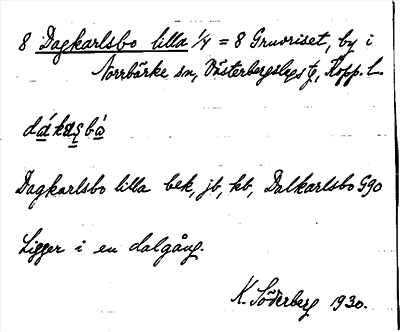 8 Dagkarlsbo lilla 1/4 = 8 Gruvriset, by i
Norrbärke sn, Västerbergslags tg, Kopp. L.
dákasbò
Dagkarlsbo lilla bek, jb, kb, Dalkarlsbo G90
Ligger i en dalgång.
K. Söderberg 1930.